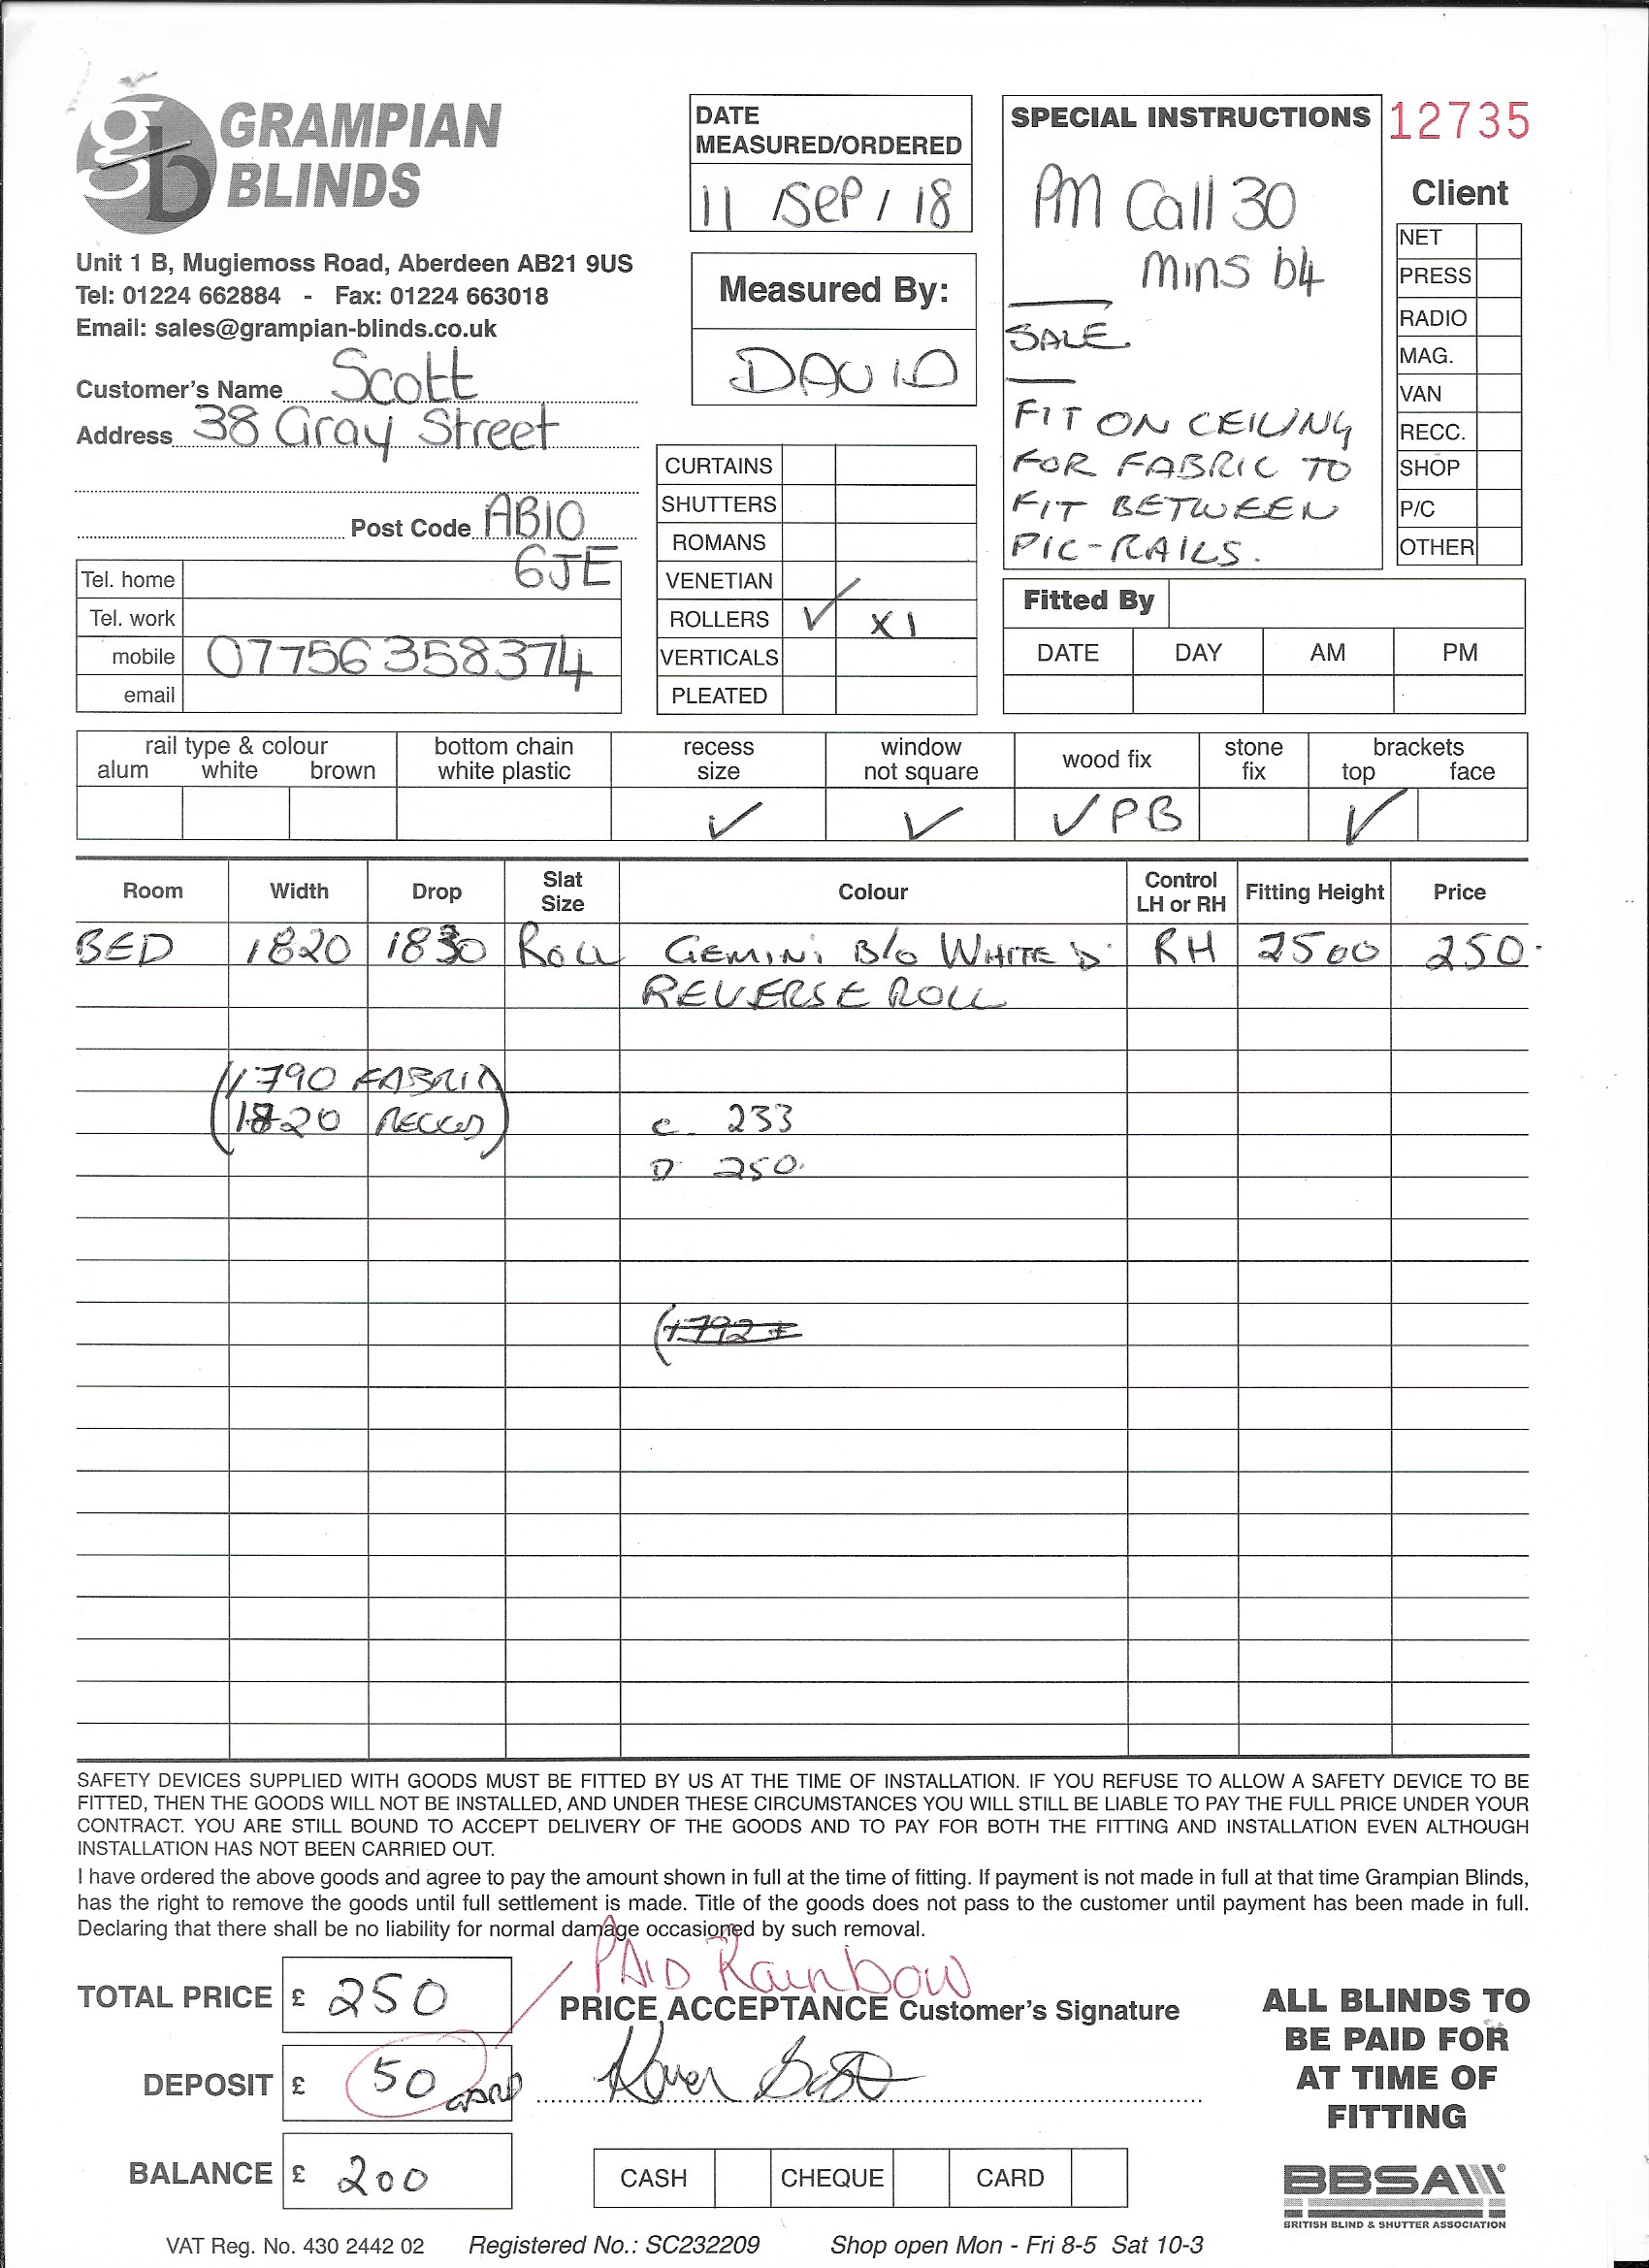 gb GRAMPIAN
BLINDS
Unit 1 B, Mugiemoss Road, Aberdeen AB21 9US
Tel: 01224 662884 - Fax: 01224 663018
Email: sales@grampian-blinds.co.uk
Customer's Name Scott
Address 38 Gray Street
Post Code AB10
6JE
Tel. home
Tel. work
mobile 07756 358374
email
DATE
MEASURED/ORDERED
11 / SEP / 18
Measured By:
DAVID
CURTAINS
SHUTTERS
ROMANS
VENETIAN
ROLLERS ✓ X1
VERTICALS
PLEATED
SPECIAL INSTRUCTIONS
PM Call 30
mins b4
SALE
FIT ON CEILING
FOR FABRIC TO
FIT BETWEEN
PIC-RAILS.
12735
Client
NET
PRESS
RADIO
MAG.
VAN
RECC.
SHOP
P/C
OTHER
Fitted By
DATE DAY AM PM
rail type & colour bottom chain recess window wood fix stone brackets
alum white brown white plastic size not square fix top face
✓ ✓ ✓ PB ✓
Room Width Drop Slat Size Colour Control LH or RH Fitting Height Price
BED 1820 1830 ROLL GEMINI B/O WHITE D RH 2500 250.
REVERSE ROLL
(1790 FABRIC)
(1820 RECCS)
C 233
D 250.
(1792 F
SAFETY DEVICES SUPPLIED WITH GOODS MUST BE FITTED BY US AT THE TIME OF INSTALLATION. IF YOU REFUSE TO ALLOW A SAFETY DEVICE TO BE
FITTED, THEN THE GOODS WILL NOT BE INSTALLED, AND UNDER THESE CIRCUMSTANCES YOU WILL STILL BE LIABLE TO PAY THE FULL PRICE UNDER YOUR
CONTRACT. YOU ARE STILL BOUND TO ACCEPT DELIVERY OF THE GOODS AND TO PAY FOR BOTH THE FITTING AND INSTALLATION EVEN ALTHOUGH
INSTALLATION HAS NOT BEEN CARRIED OUT.
I have ordered the above goods and agree to pay the amount shown in full at the time of fitting. If payment is not made in full at that time Grampian Blinds,
has the right to remove the goods until full settlement is made. Title of the goods does not pass to the customer until payment has been made in full.
Declaring that there shall be no liability for normal damage occasioned by such removal.
PAID Rainbow
TOTAL PRICE £ 250
PRICE ACCEPTANCE Customer's Signature
DEPOSIT £ 50 CARD
BALANCE £ 200
CASH CHEQUE CARD
ALL BLINDS TO
BE PAID FOR
AT TIME OF
FITTING
BBSA
BRITISH BLIND & SHUTTER ASSOCIATION
VAT Reg. No. 430 2442 02 Registered No.: SC232209 Shop open Mon - Fri 8-5 Sat 10-3